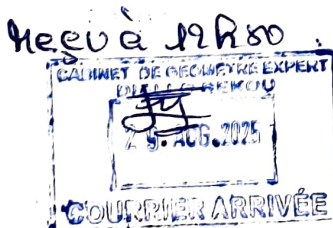 Reçu à 12h80
CABINET DE GEOMETRE EXPERT
AUG. 2025
COURRIER ARRIVÉE